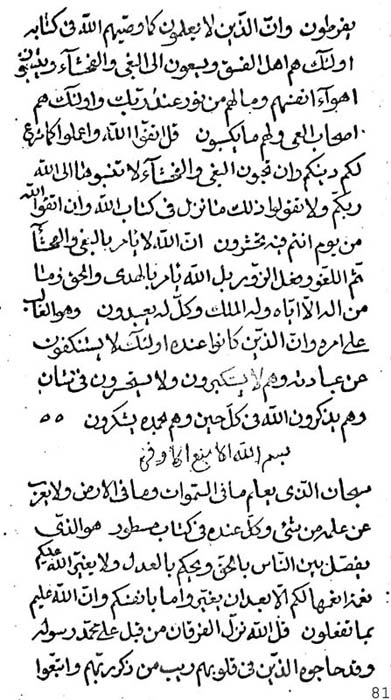 يفرطون وان الذين لا يعلمون كما وصيهم الله فى كتابه
اولئك هم اهل الفسق ويدعون الى البغى والفحشآء ويتبعون
اهوآء انفسهم وما لهم من نور عند ربك واولئك هم
اصحاب العمى ولهم ما يكسبون قل اتقوا الله واعملوا كما شرع
لكم دينكم وان تحبون البغى والفحشآء لا تنسبوها الى الله
ربكم ولا تقولوا ذلك ما نزل فى كتاب الله وان اتقوا الله
من يوم انتم فيه تحشرون ان الله لا يامر بالبغى والفحشآء
ثم اللغو وفعل الزور بل الله يامر بالهدى والحق وما
من اله الا اياه وله الملك وكل له يعبدون وهو الغالب
على امره وان الذين كانوا عنده اولئك لا يستنكفون
عن عبادته وهم لا يستكبرون ولا فى شان
وهم يذكرون الله فى كل حين وهم بحمده يشكرون
بسم الله الامنع الاوفى
سبحان الذى يعلم ما فى السموات وما فى الارض ولا يعزب
عن علمه من شئ وكل عنده فى كتاب مسطور هو الذى
يفصل بين الناس بالحق ويحكم بالعدل ولا يغير الله عليكم
نعمة انعمها لكم الا بعد ان يغير ما بانفسكم وان الله عليم
بما تفعلون قل الله نزل الفرقان من قبل على محمد رسوله
وقد حاجوه الذين فى قلوبهم ريب من ذكر ربهم واتبعوا
81